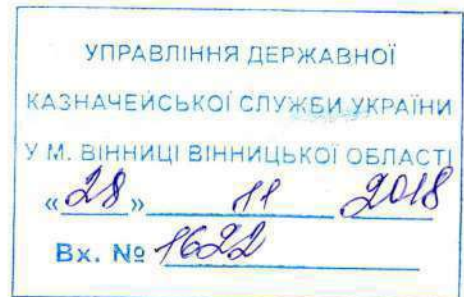 УПРАВЛІННЯ ДЕРЖАВНОЇ
КАЗНАЧЕЙСЬКОЇ СЛУЖБИ УКРАЇНИ
У М. ВІННИЦІ ВІННИЦЬКОЇ ОБЛАСТІ
«28» 11 2018
Вх. № 1622